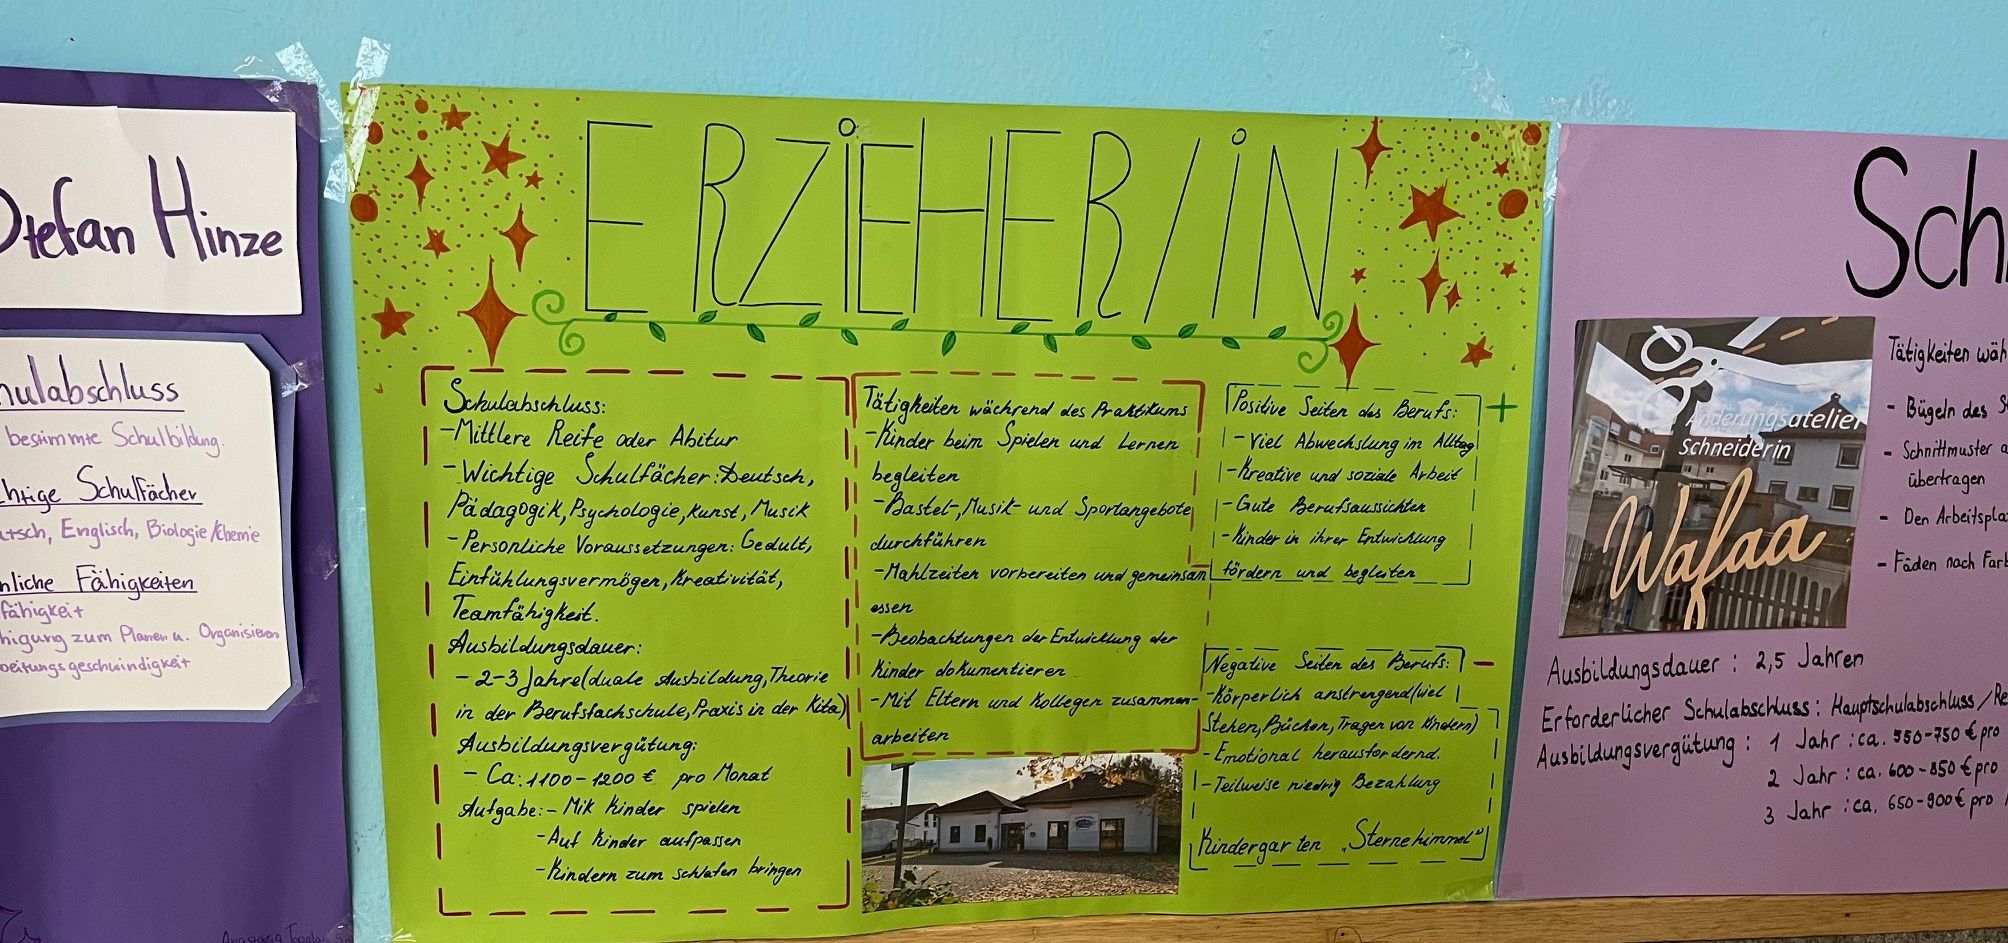 Stefan Hinze
hulabschluss
bestimmte Schulbildung.
htige Schulfächer
tsch, Englisch, Biologie/Chemie
nliche Fähigkeiten
fähigkeit
higung zum Planen u. Organisieren
beitungsgeschwindigkeit
ERZIEHER/IN
Schulabschluss:
-Mittlere Reife oder Abitur
-Wichtige Schulfächer: Deutsch,
Pädagogik, Psychologie, Kunst, Musik
-Persönliche Voraussetzungen: Gedult,
Einfühlungsvermögen, Kreativität,
Teamfähigkeit.
Ausbildungsdauer:
- 2-3 Jahre (duale Ausbildung, Theorie
in der Berufsfachschule, Praxis in der Kita)
Ausbildungsvergütung:
- Ca: 1100-1200 € pro Monat
Aufgabe: - Mik Kinder spielen
-Auf Kinder aufpassen
-Kindern zum schlafen bringen
Tätigkeiten während des Praktikums
-Kinder beim Spielen und Lernen
begleiten
-Bastel-, Musik- und Sportangebote
durchführen
-Mahlzeiten vorbereiten und gemeinsam
essen
-Beobachtungen der Entwicklung der
Kinder dokumentieren
-Mit Eltern und Kollegen zusammen-
arbeiten
Positive Seiten des Berufs: +
-Viel Abwechslung im Alltag
-Kreative und soziale Arbeit
-Gute Berufsaussichten
-Kinder in ihrer Entwicklung
fördern und begleiten
Negative Seiten des Berufs: -
-Körperlich anstrengend (viel
Stehen, Bücken, Tragen von Kindern)
-Emotional herausfordernd.
-Teilweise niedrig Bezahlung
Kindergarten „Sternehimmel"
Sch
Änderungsatelier
Schneiderin
Wafaa
Tätigkeiten wäh
- Bügeln des S
- Schnittmuster a
übertragen
- Den Arbeitspla
- Fäden nach Farb
Ausbildungsdauer : 2,5 Jahren
Erforderlicher Schulabschluss : Hauptschulabschluss / Re
Ausbildungsvergütung : 1 Jahr : ca. 550-750 € pro
2 Jahr : ca. 600-850 € pro
3 Jahr : ca. 650-900 € pro